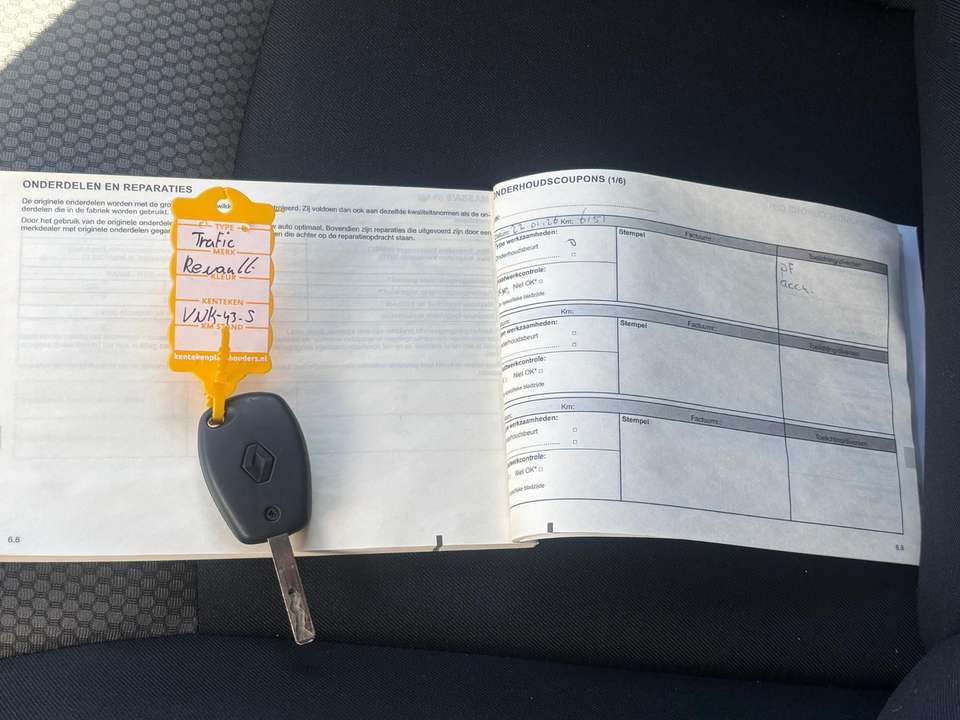 ONDERDELEN EN REPARATIES
De originele onderdelen worden met de gro
troleerd. Zij voldoen dan ook aan dezelfde kwaliteitsnormen als de on-
derdelen die in de fabriek worden gebruikt.
Door het gebruik van de originele onderdele
w auto optimaal. Bovendien zijn reparaties die uitgevoerd zijn door een
merkdealer met originele onderdelen gegar
en die achter op de reparatieopdracht staan.
TYPE
Trafic
MERK
Renault
KLEUR
KENTEKEN
VNK-43-S
KM STAND
kentekenplaathouders.nl
6.8
NDERHOUDSCOUPONS (1/6)
Km: 6151
Type werkzaamheden:
Onderhoudsbeurt
Stempel
Factuurnr.:
Toelichting/diversen
PF
accu.
Niet OK*
Km:
pe werkzaamheden:
derhoudsbeurt
Stempel
Factuurnr.:
Toelichting/diversen
atwerkcontrole:
Niet OK*
ecifieke bladzijde
Km:
e werkzaamheden:
erhoudsbeurt
Stempel
Factuurnr.:
Toelichting/diversen
atwerkcontrole:
Niet OK*
ecifieke bladzijde